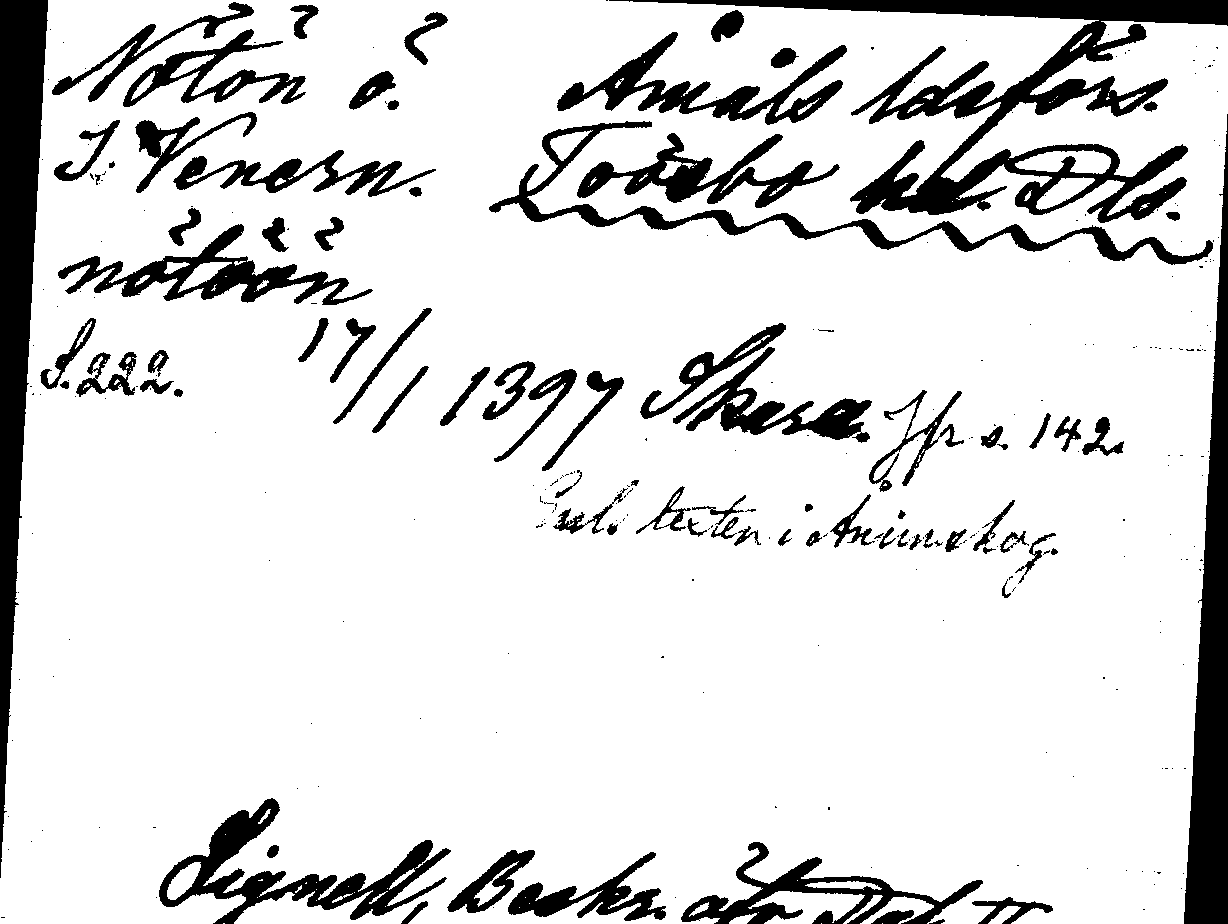 Nötön ö. Åmåls ldsförs.
I. Venern. Tössbo hd. Dls.
nötöön
S.222. 17/1 1397 Skara. Jfr s. 142.
Enl. texten i Ånimskog.
Signell, Beskr. öfv. Dal. II